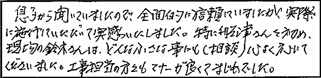 息子から聞いていましたので、全面的に信頼していましたが、実際
に施行していただいて実感いたしました。特に利谷さんを初め、
現場の鈴木さんは、どんな小さな事にも(相談)心よく下さって
くださいました。工事担当の方もマナーが良くすばらしいでした。